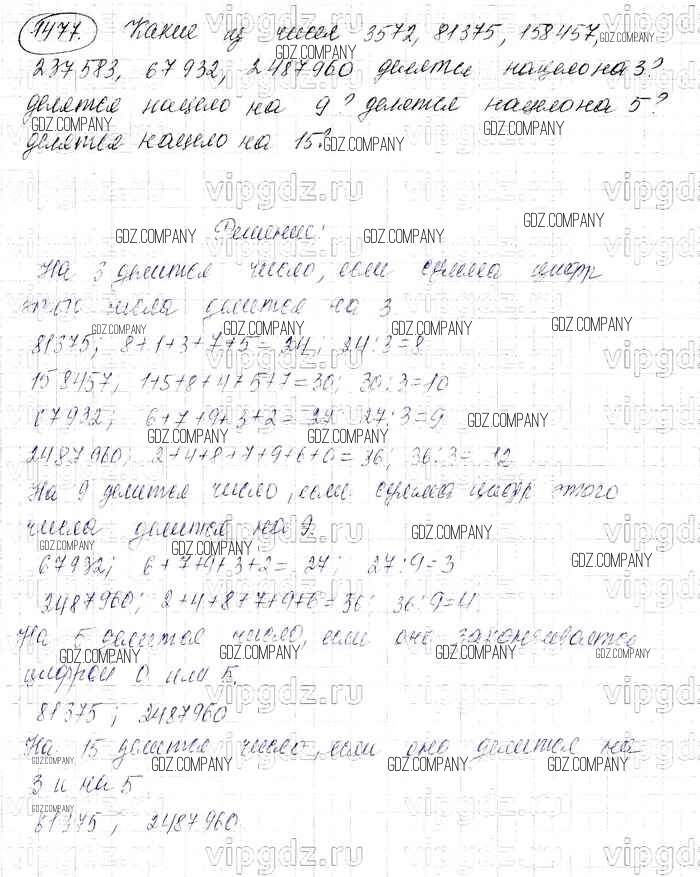 1477. Какие из чисел 3572, 81375, 158457,
237583, 67932, 2487960 делятся нацело на 3?
делятся нацело на 9? делятся нацело на 5?
делятся нацело на 15?
Решение:
На 3 делится число, если сумма цифр
этого числа делится на 3
81375; 8+1+3+7+5=24; 24:3=8
158457, 1+5+8+4+5+7=30; 30:3=10
67932; 6+7+9+3+2= 27 27:3=9
2487960; 2+4+8+7+9+6+0=36; 36:3= 12
На 9 делится число, если сумма цифр этого
числа делится на 9.
67932; 6+7+9+3+2= 27; 27:9=3
2487960; 2+4+8+7+9+6=36; 36:9=4.
На 5 делится число, если оно заканчивается
цифрой 0 или 5.
81375; 2487960
На 15 делится число, если оно делится на
3 и на 5.
81375; 2487960.